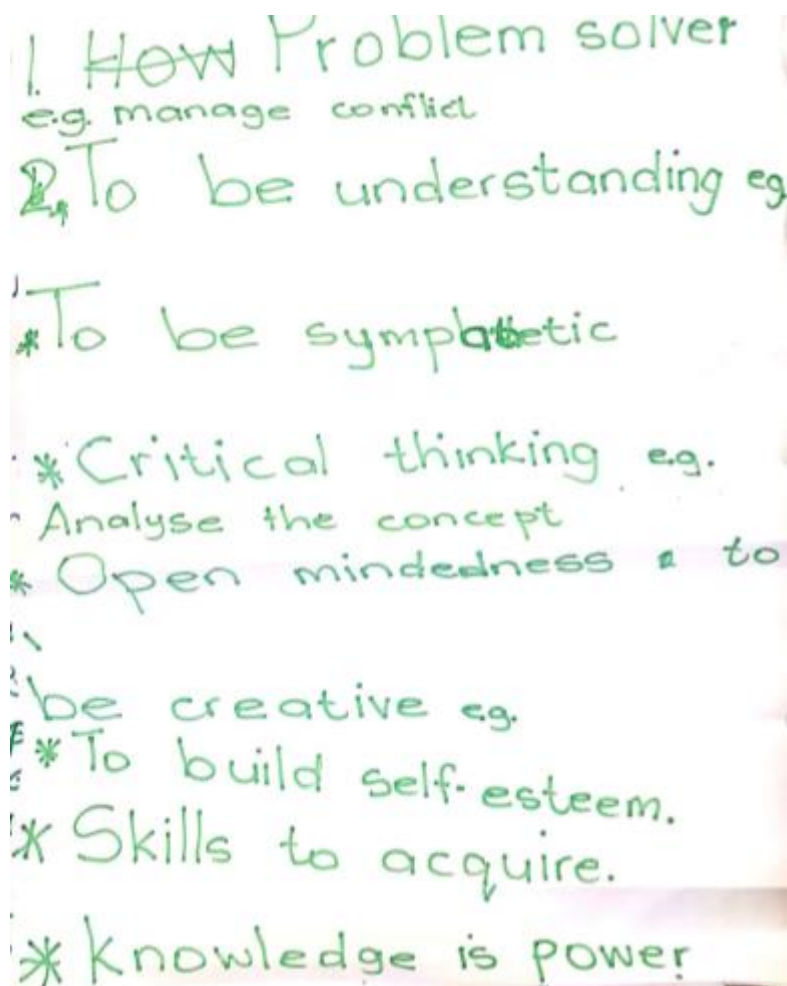 1. How Problem solver
e.g. manage conflict
2. To be understanding eg
* To be sympathetic
* Critical thinking e.g.
Analyse the concept
* Open mindedness to
be creative eg.
* To build self-esteem.
* Skills to acquire.
* Knowledge is power